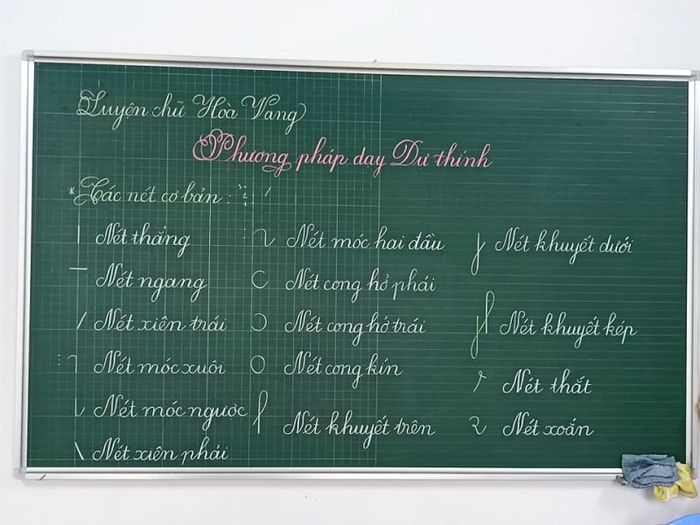 Luyện chữ Hoà Vang
Phương pháp day Dự thính
* Các nét cơ bản :
Nét thẳng
Nét ngang
Nét xiên trái
Nét móc xuôi
Nét móc ngược
Nét xiên phải
Nét móc hai đầu
Nét cong hở phải
Nét cong hở trái
Nét cong kín
Nét khuyết trên
Nét khuyết dưới
Nét khuyết kép
Nét thắt
Nét xoắn